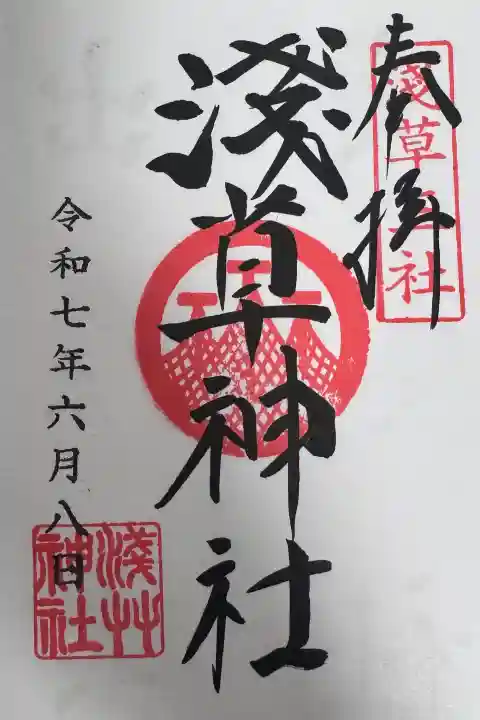 奉拝
淺草三社
淺草神社
令和七年六月八日
淺艸
神社